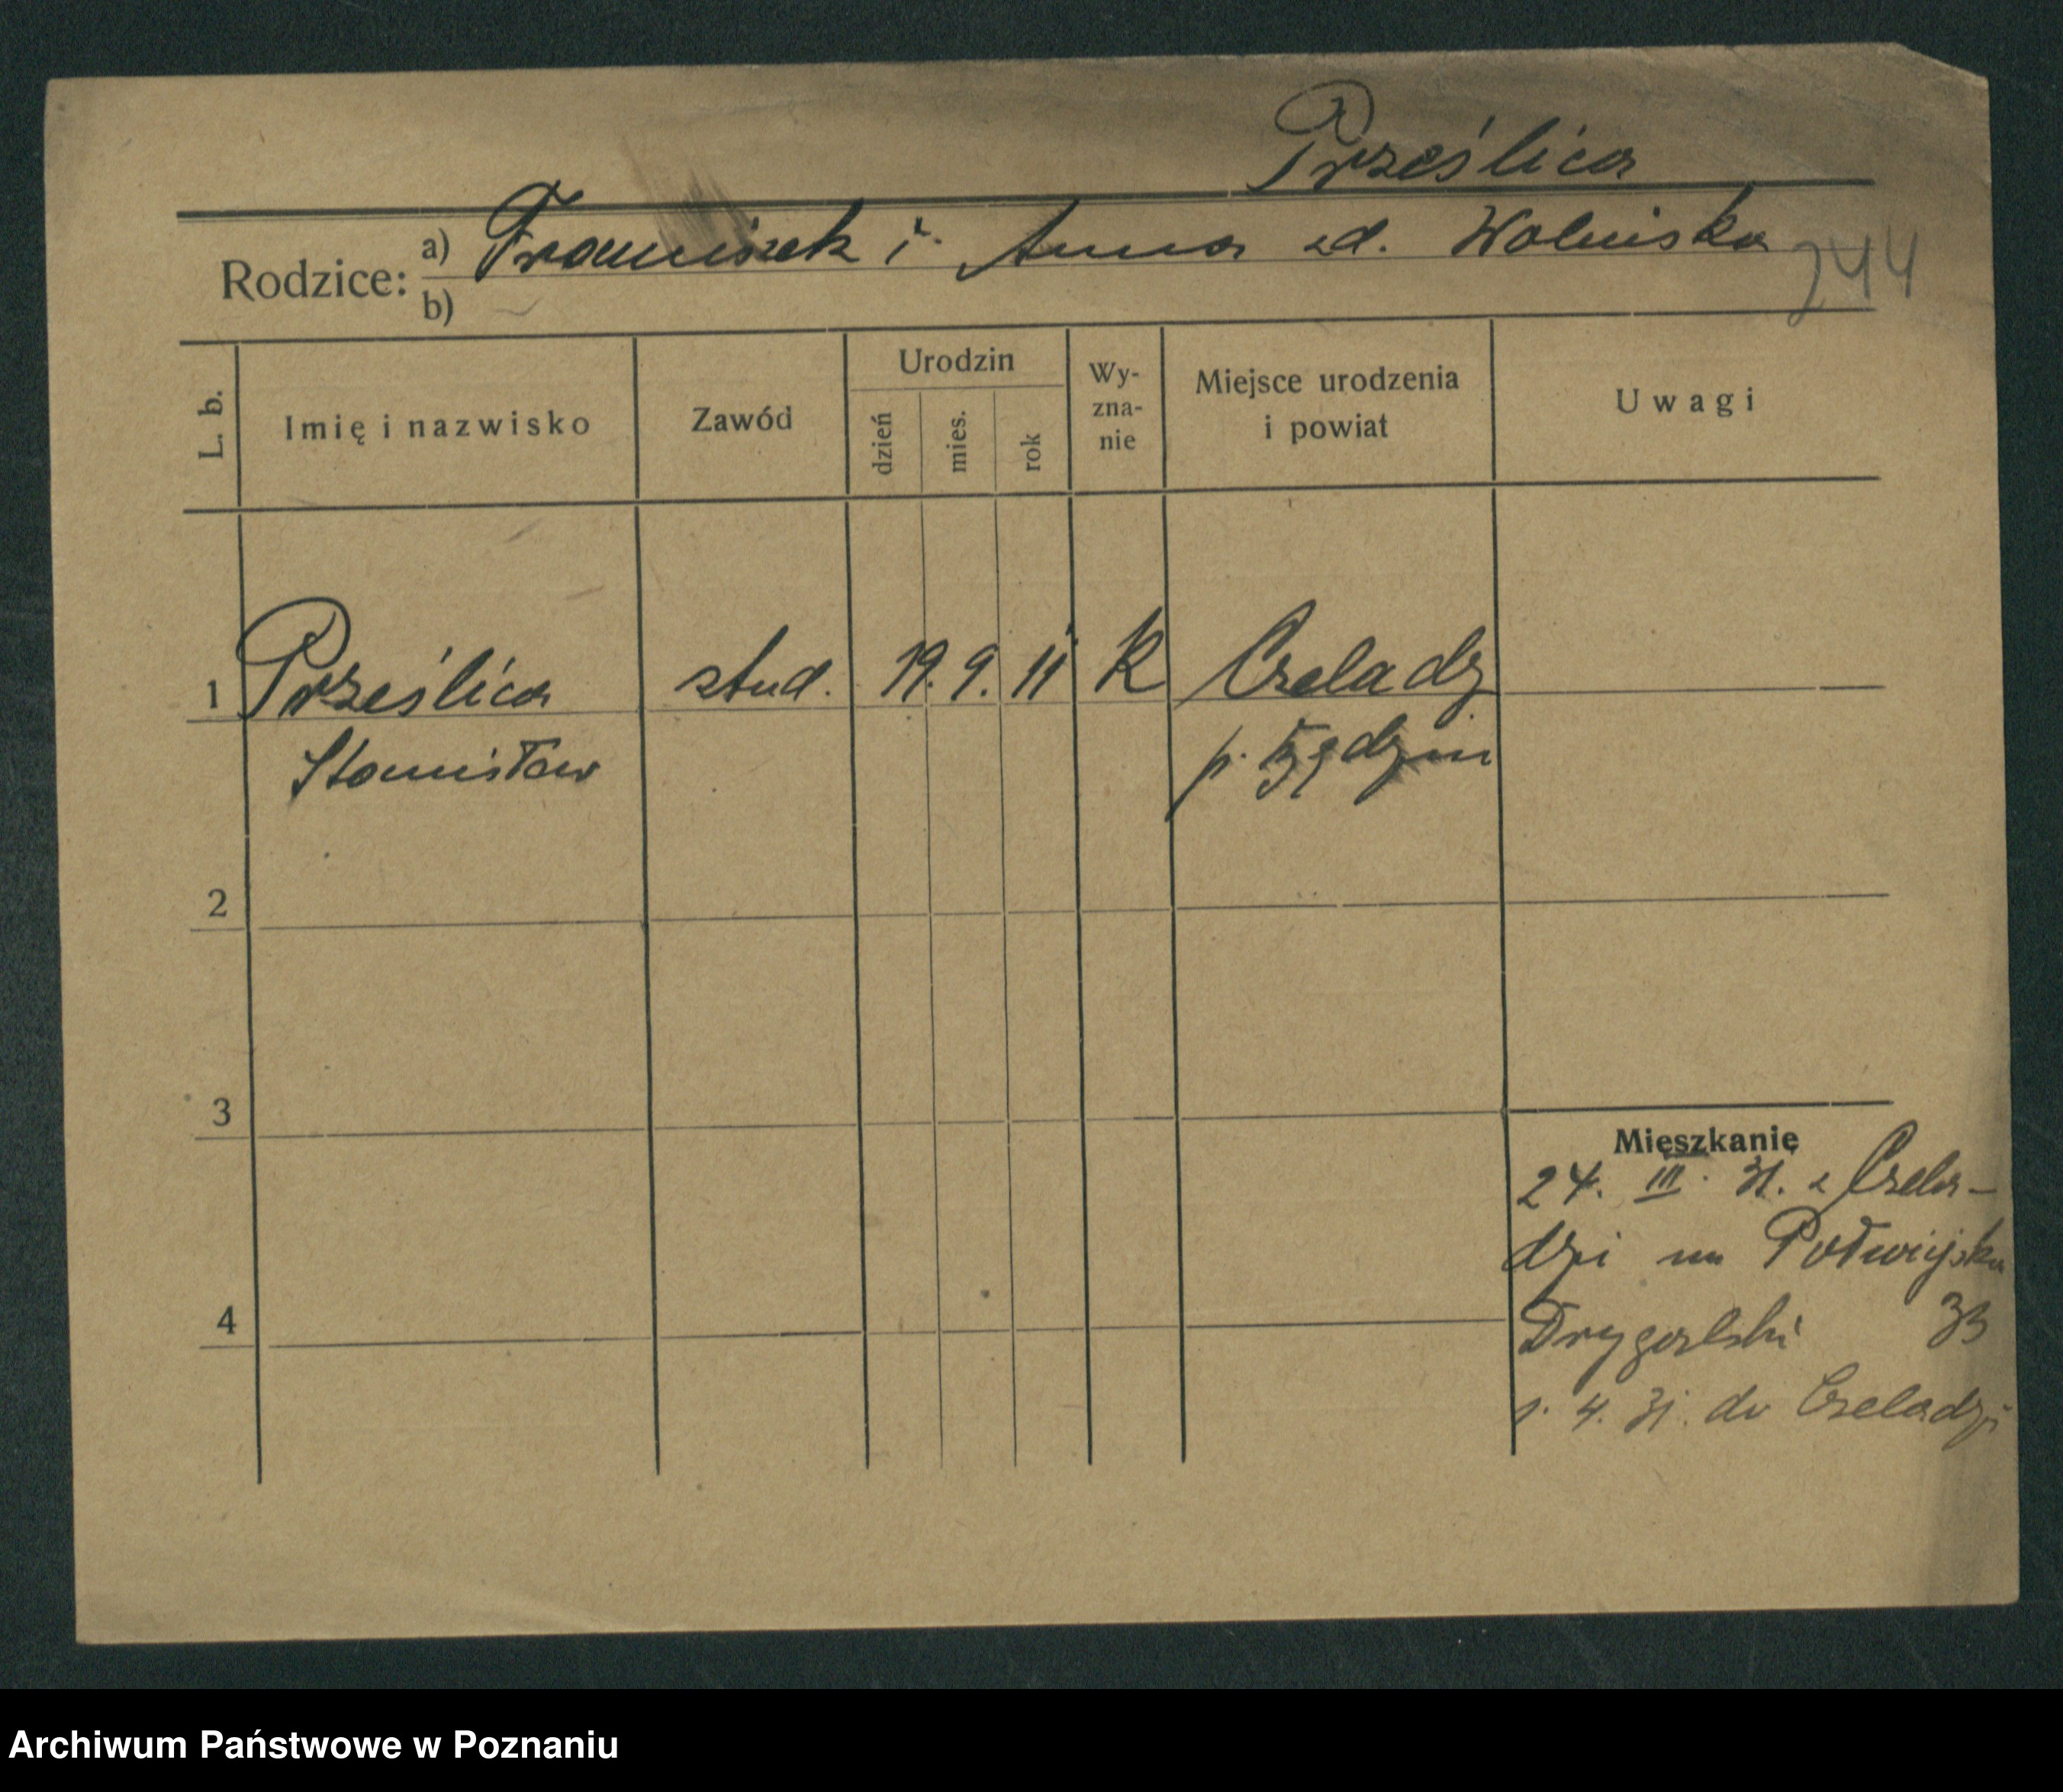 Prześlica
Rodzice: a) Franciszek i Anna zd. Wolniska
b)
244
L. b.
Imię i nazwisko
Zawód
Urodzin
dzień
mies.
rok
Wy-
zna-
nie
Miejsce urodzenia
i powiat
Uwagi
1 Prześlica stud. 19. 9. 11 K Czeladz
Stanisław p. Będzin
2
3
Mieszkanie
24. III. 31. z Czela-
dzi na
4
Drygalski 33
1. 4. 31. do Czeladzi
Archiwum Państwowe w Poznaniu